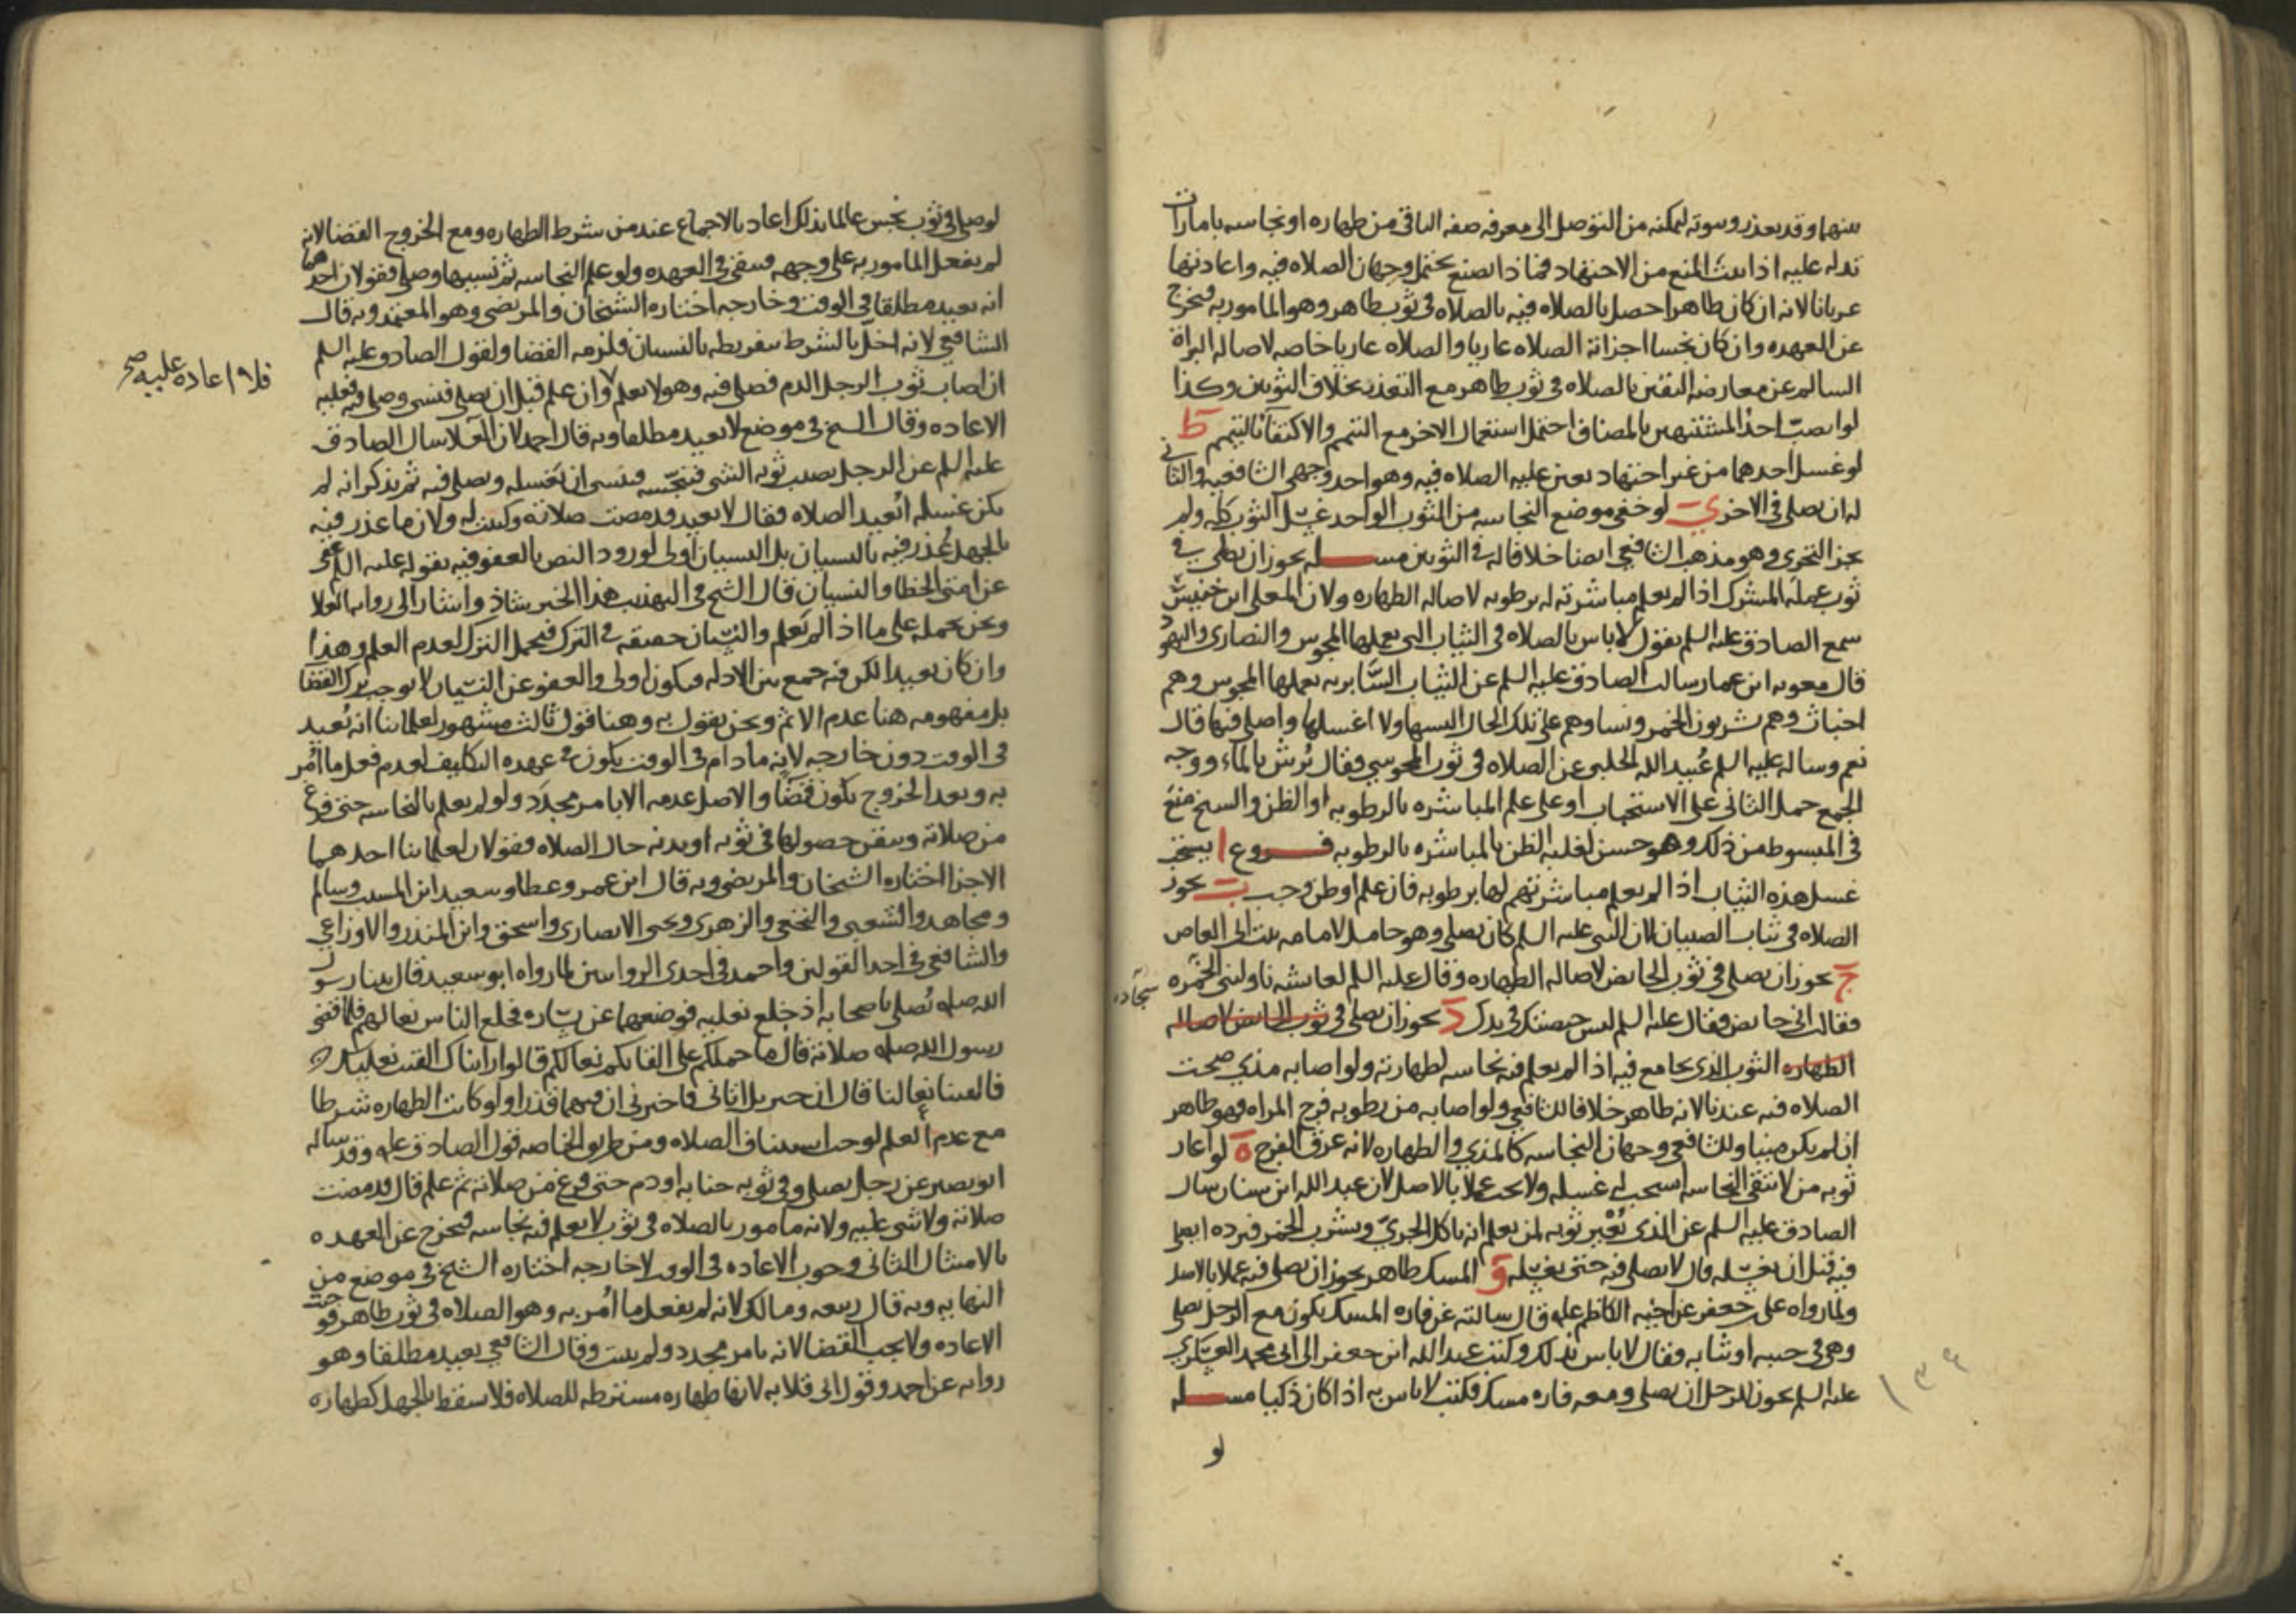 بينهما وقد يعذر وسوته ليمكنه من التوصل الى معرفه صفه الباقى من طهاره او نجاسه بامارات
تدله عليه اذا ثبت المنع من الاجتهاد فماذا يصنع يحتمل وجهان الصلاه فيه واعادتها
عريانا لانه ان كان طاهرا حصل بالصلاه فيه بالصلاه فى ثوب طاهر وهو المامور به فيخرج
عن العهده وان كان نجسا اجزاته الصلاه عاريا والصلاه عاريا خاصه لاصاله البراة
السالم عن معارضه التيقن بالصلاه فى ثوب طاهر مع التعذر بخلاف الثوبين وكذا
لو انصب احد المشتبهين بالمضاف احتمل استعمال الاخر مع التيمم والاكتفآ بالتيمم ط
لو غسل احدهما من غير اجتهاد تعين عليه الصلاه فيه وهو احد وجهى الشافعيه والثانى
له ان يصلى فى الاخر ي لو خفى موضع النجاسه من الثوب الواحد غسل الثوب كله ولم
يجز التحرى وهو مذهب الشافعى ايضا خلافا له فى الثوبين مسله يجوز ان يصلى فى
ثوب عمله المشرك اذا لم يعلم مباشرته له برطوبه لاصاله الطهاره ولان المعلى ابن خنيس
سمع الصادق عليه السلم يقول لا باس بالصلاه فى الثياب التى يعملها المجوس والنصارى واليهود
قال معويه ابن عمار سالت الصادق عليه السلم عن الثياب السابريه يعملها المجوس وهم
اخباث وهم يشربون الخمر ونساوهم على تلك الحال البسها ولا اغسلها واصلى فيها قال
نعم وساله عليه السلم عُبيد الله الحلبى عن الصلاه فى ثوب المجوسى فقال يُرش بالمآء ووجه
الجمع حمل الثانى على الاستحباب او على علم المباشره بالرطوبه او الظن والشيخ منع
فى المبسوط من ذلك وهو حسن لغلبه الظن بالمباشره بالرطوبه فروع ا يستحب
غسل هذه الثياب اذا لم يعلم مباشرتهم لها برطوبه فان علم او ظن وجب ب يجوز
الصلاه فى ثياب الصبيان لان النبى عليه السلم كان يصلى وهو حامل لامامه بنت ابى العاص
ج يجوز ان يصلى فى ثوب الحايض لاصاله الطهاره وقال عليه السلم لعايشه ناولينى الخُمره
سجاده
فقالت انى حايض فقال عليه السلم ليس حيضتك فى يدك د يجوز ان يصلى فى ثوب الحايض لاصاله
الطهاره الثوب الذى يجامع فيه اذا لم يعلم فيه نجاسه لطهارته ولو اصابه مذي صحت
الصلاه فيه عندنا لانه طاهر خلافا للشافعي ولو اصابه من رطوبه فرج المراه فهو طاهر
ان لم يكن منيا وللشافعى وجهان النجاسه كالمذي والطهاره لانه عرق الفرج ه لو اعار
ثوبه من لا يتقى النجاسه استحب له غسله ولا يجب عملا بالاصل لان عبد الله ابن سنان سال
الصادق عليه السلم عن الذى يُعير ثوبه لمن يعلم انه ياكل الجريّ ويشرب الخمر فيرده ايصلى
فيه قبل ان يغسله قال لا يصلى فيه حتى يغسله و المسك طاهر يجوز ان يصلى فيه عملا بالاصل
ولما رواه على ابن جعفر عن اخيه الكاظم عليه قال سالته عن فاره المسك يكون مع الرجل يصلى
وهى فى جيبه او ثيابه فقال لا باس بذلك وكتب عبد الله ابن جعفر الى ابى محمد العسكري
عليه السلم يجوز للرجل ان يصلى ومعه فاره مسك فكتب لا باس به اذا كان ذكيا مسله
لو
١٣٤
لو صلى فى ثوب نجس عالما بذلك اعاد بالاجماع عند من شرط الطهاره ومع الخروج القضا لانه
لم يفعل المامور به على وجهه فيبقى فى العهده ولو علم النجاسه ثم نسيها وصلى فقولان احدهما
انه يعيد مطلقا فى الوقت وخارجه اختاره الشيخان والمرتضى وهو المعتمد وبه قال
الشافعي لانه اخل بالشرط بتفريطه بالنسيان فلزمه القضا ولقول الصادق عليه السلم
ان اصاب ثوب الرجل الدم فصلى فيه وهو لا يعلم وان علم قبل ان يصلى فنسى وصلى فيه فعليه
فلا اعاده عليه صح
الاعاده وقال الشيخ فى موضع لا يعيد مطلقا وبه قال احمد لان العلا سال الصادق
عليه السلم عن الرجل يصيب ثوبه الشى فينجّسه فينسى ان يغسله ويصلى فيه ثم يذكر انه لم
يكن غسله ايُعيد الصلاه فقال لا يعيد قد مضت صلاته وكتبت له ولان ما عذر فيه
بالجهل عُذر فيه بالنسيان بل النسيان اولى لورود النص بالعفو فيه بقوله عليه السلم عفى
عن امتى الخطا والنسيان قال الشيخ فى التهذيب هذا الخبر شاذ واشار الى روايه العلا
ونحن نحمله على ما اذا لم يَعلم والنسيان حقيقه فى الترك فيحمل الترك لعدم العلم وهذا
وان كان بعيدا لكن فيه جمع بين الادله فيكون اولى والعفو عن النسيان لا يوجب ترك القضا
بل مفهومه هنا عدم الاثم ونحن نقول به وهنا قول ثالث مشهور لعلمائنا انه يُعيد
فى الوقت دون خارجه لانه ما دام فى الوقت يكون فى عهده التكليف لعدم فعل ما اُمر
به وبعد الخروج يكون قضآا والاصل عدمه الا بامر مجدَّد ولو لم يعلم بالنجاسه حتى فرغ
من صلاته وتيقن حصولها فى ثوبه او بدنه حال الصلاه فقولان لعلمائنا احدهما
الاجزا اختاره الشيخان والمرتضى وبه قال ابن عمر وعطا وسعيد ابن المسيب وسالم
ومجاهد والشعبى والنخعي والزهرى ويحيى الانصارى واسحق وابن المنذر والاوزاعى
والشافعى فى احد القولين واحمد فى احدى الروايتين لما رواه ابو سعيد قال بينا رسول
الله صلى يُصلى باصحابه اذ خلع نعليه فوضعهما عن يساره فخلع الناس نعالهم فلما قضى
رسول الله صلى صلاته قال ما حملكم على القائكم نعالكم قالوا رايناك القيت نعليك
فالقينا نعالنا قال ان جبريل اتانى فاخبرنى ان فيهما قذرا ولو كانت الطهاره شرطا
مع عدم العلم لوجب استيناف الصلاه ومن طريق الخاصه قول الصادق عليه وقد ساله
ابو بصير عن رجل يصلى وفى ثوبه جنابه او دم حتى فرغ من صلاته ثم علم قال قد مضت
صلاته ولا شى عليه ولانه مامور بالصلاه فى ثوب لا يعلم فيه نجاسه فيخرج عن العهده
بالامتثال الثانى وجوب الاعاده فى الوقت لا خارجه اختاره الشيخ فى موضع من
النهايه وبه قال ربيعه ومالك لانه لم يفعل ما اُمر به وهو الصلاه فى ثوب طاهر فوجبت
الاعاده ولا يجب القضا لانه بامر مجدد ولم يثبت وقال الشافعي يعيد مطلقا وهو
روايه عن احمد وقول ابى قلابه لانها طهاره مشترطه للصلاه فلا تسقط بالجهل كطهاره